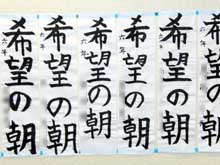 希望の朝
六年
希望の朝
六年
希望の朝
六年
希望の朝
六年
希望の朝
六年
希望の朝